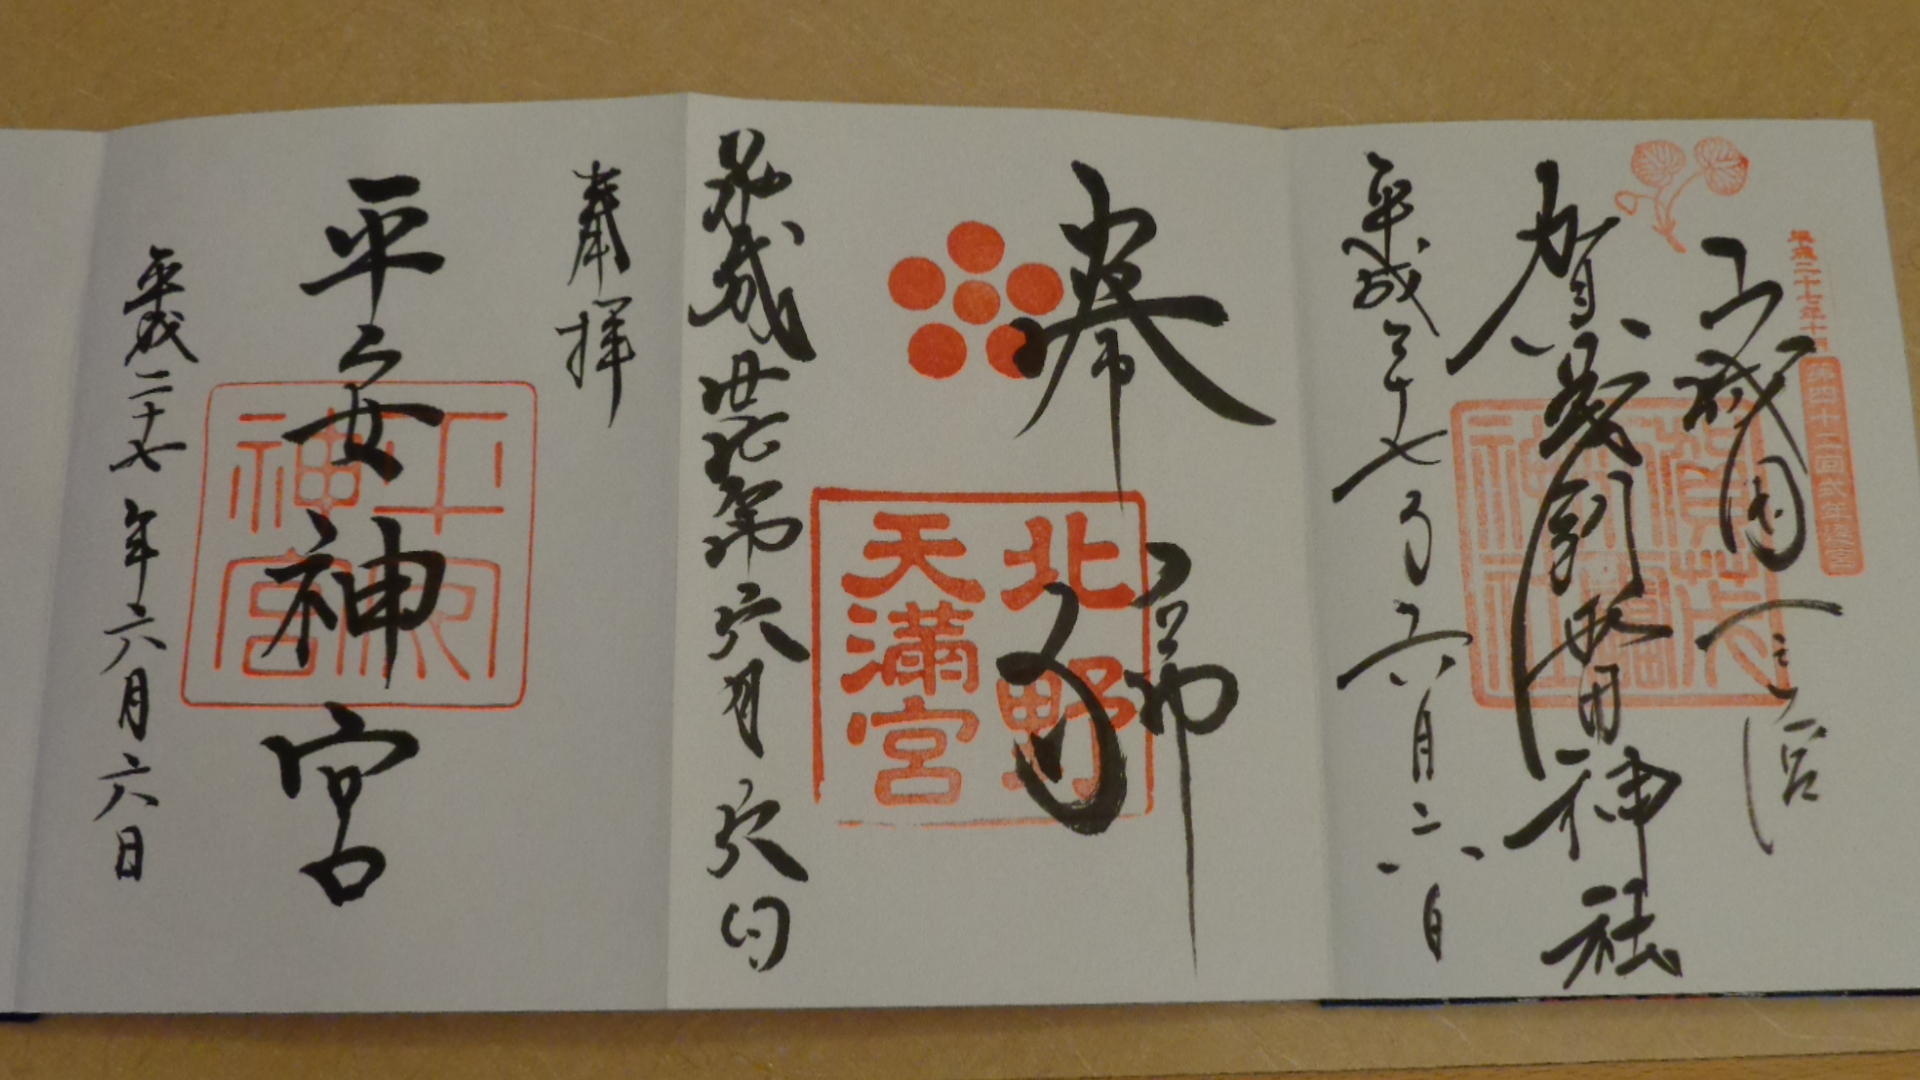 平成二十七年十月
第四十二回式年遷宮
山城国一之宮
賀茂別雷神社
平成二十七年六月六日
賀茂
別雷
神社
奉
拝
北野
天満宮
平成廿七年六月六日
奉拝
平安神宮
平安
神宮
平成二十七年六月六日